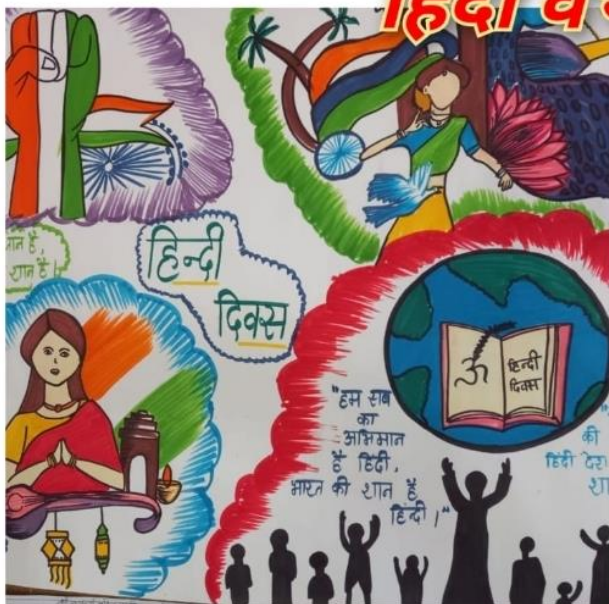 हिंदी
मान है,
शान है।
हिन्दी
दिवस
हिन्दी
दिवस
"हम सब
का
अभिमान
है हिंदी,
भारत की शान है
हिन्दी।"
की
हिंदी